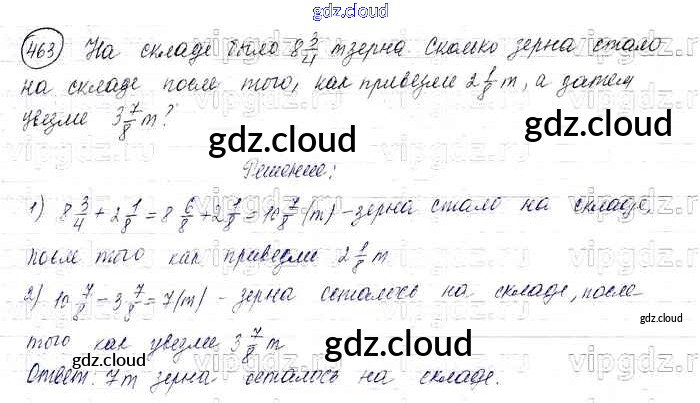 gdz.cloud
463 На складе было 8 3/4 т зерна. Сколько зерна стало
на складе после того, как привезли 2 1/8 т, а затем
увезли 3 7/8 т?
gdz.cloud
gdz.cloud
Решение:
1) 8 3/4 + 2 1/8 = 8 6/8 + 2 1/8 = 10 7/8 (т) – зерна стало на складе,
после того как привезли 2 1/8 т
2) 10 7/8 – 3 7/8 = 7 (т) – зерна осталось на складе, после
gdz.cloud
того как увезли 3 7/8 т
gdz.cloud
gdz.cloud
Ответ: 7 т зерна осталось на складе.
gdz.cloud